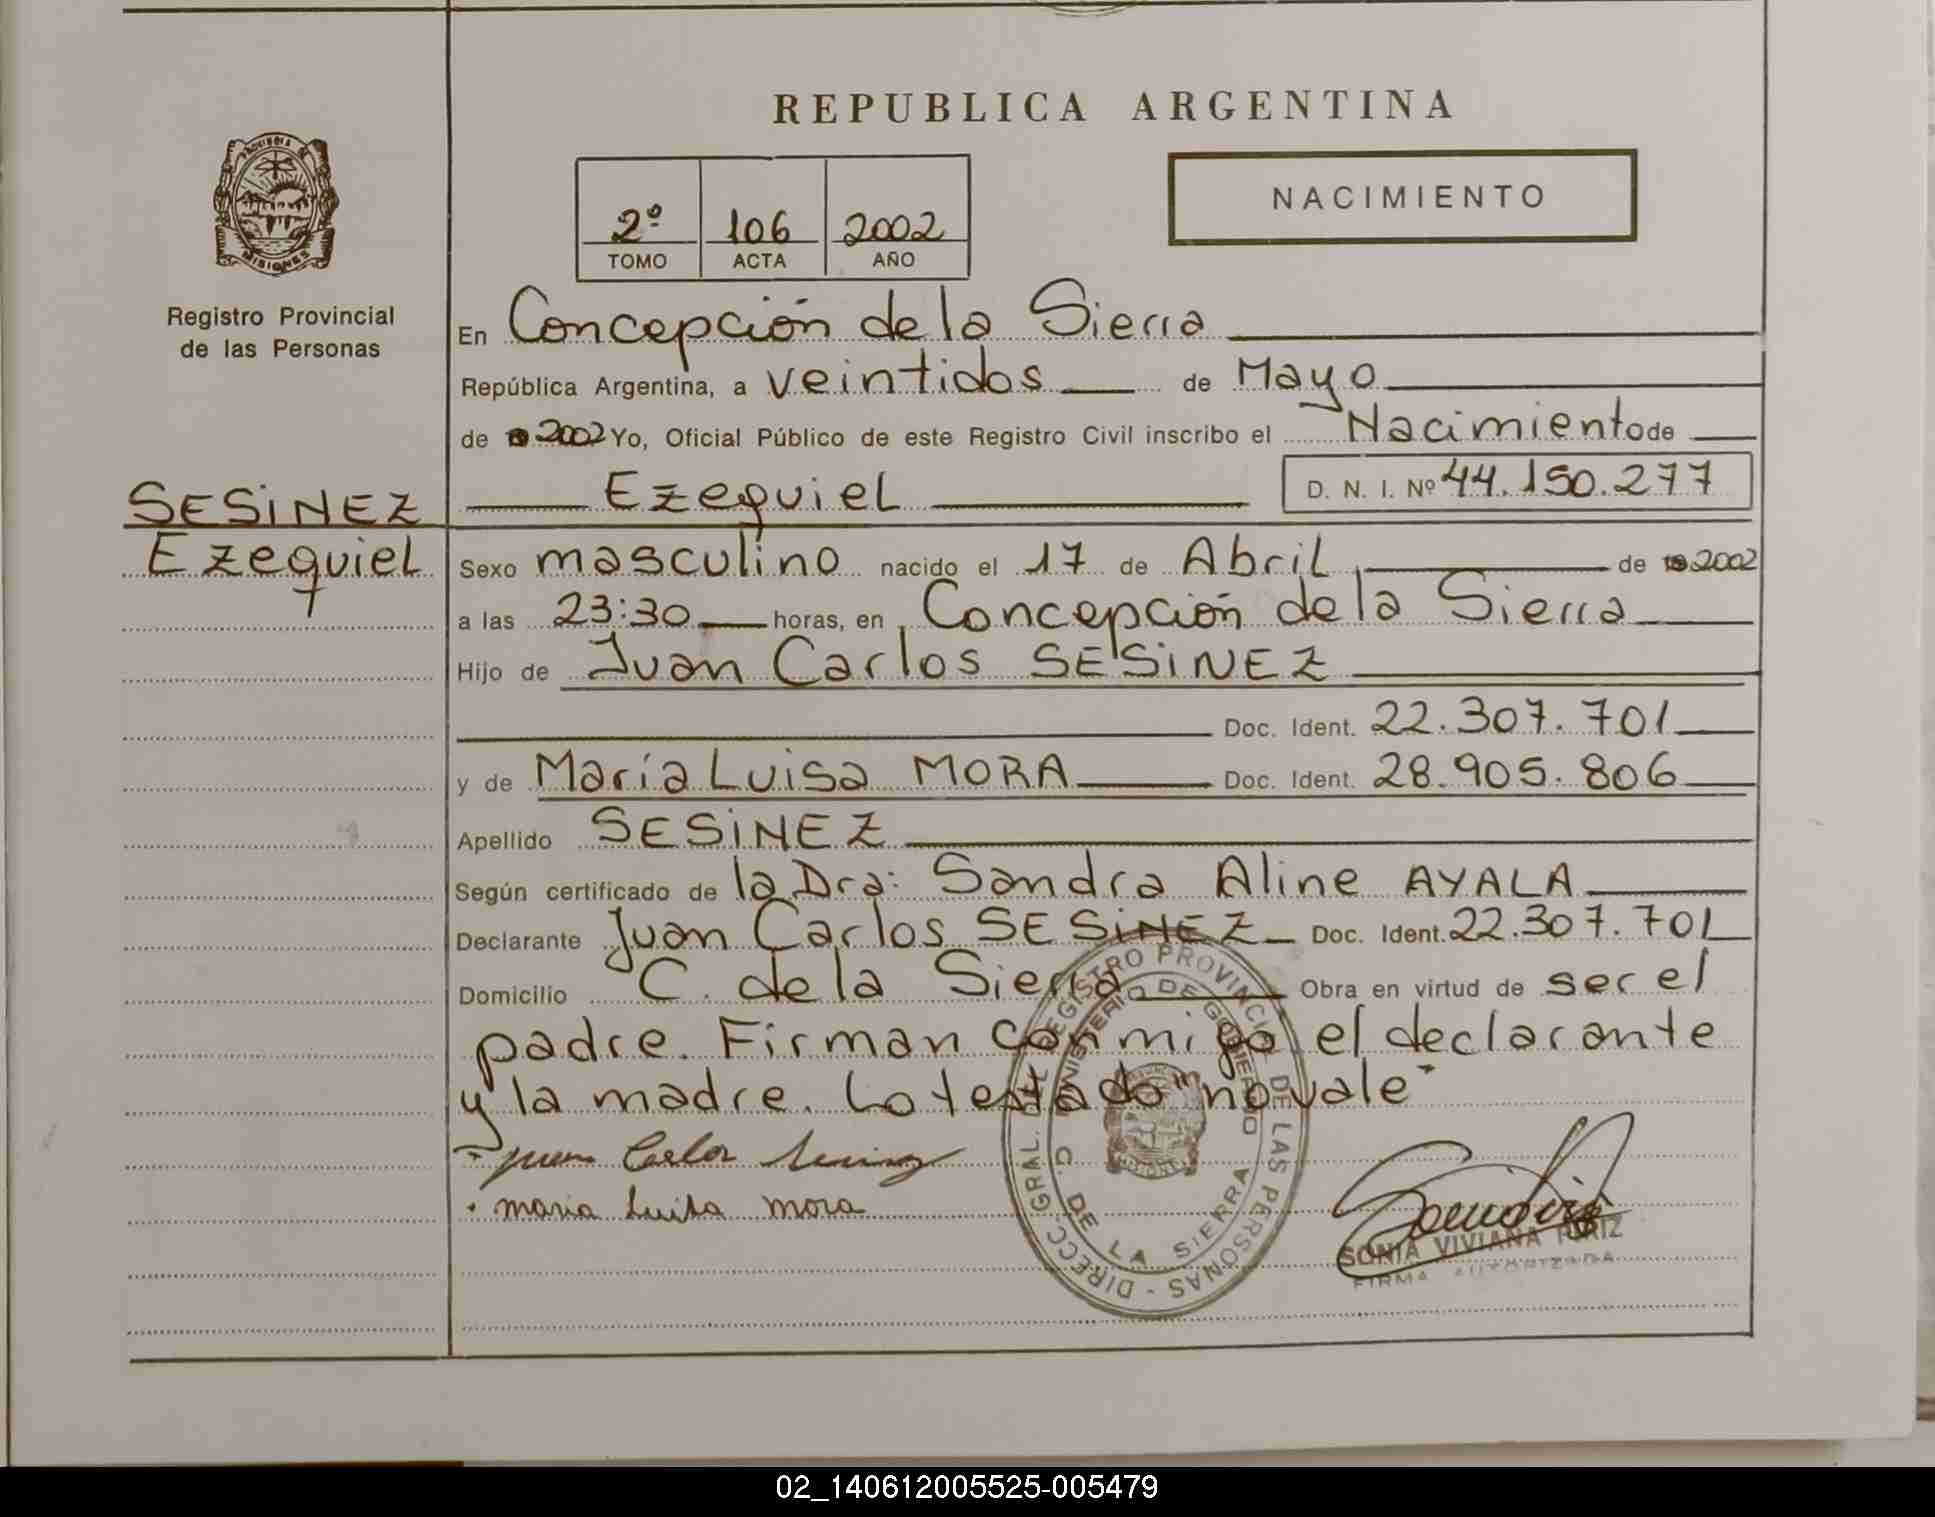 REPUBLICA ARGENTINA
PROVINCIA DE
MISIONES
Registro Provincial
de las Personas
2º 106 2002
TOMO ACTA AÑO
NACIMIENTO
En Concepción de la Sierra
República Argentina, a veintidos de Mayo
de 2002 Yo, Oficial Público de este Registro Civil inscribo el Nacimiento de
Ezequiel D. N. I. Nº 44.150.277
SESiNEZ
Ezequiel
Sexo masculino nacido el 17 de Abril de 2002
a las 23:30 horas, en Concepción de la Sierra
Hijo de Juan Carlos SESiNEZ
Doc. Ident. 22.307.701
y de María Luisa MORA Doc. Ident. 28.905.806
Apellido SESiNEZ
Según certificado de la Dra: Sandra Aline AYALA
Declarante Juan Carlos SESiNEZ Doc. Ident. 22.307.701
Domicilio C. de la Sierra Obra en virtud de ser el
padre. Firman conmigo el declarante
y la madre. Lo testado "no vale"
Juan Carlos
maria Luisa mora
DIRECC. GRAL. DEL REGISTRO PROVINCIAL DE LAS PERSONAS -
MINISTERIO DE GOBIERNO
C. DE LA SIERRA
SONIA VIVIANA
FIRMA AUTORIZADA
02_140612005525-005479